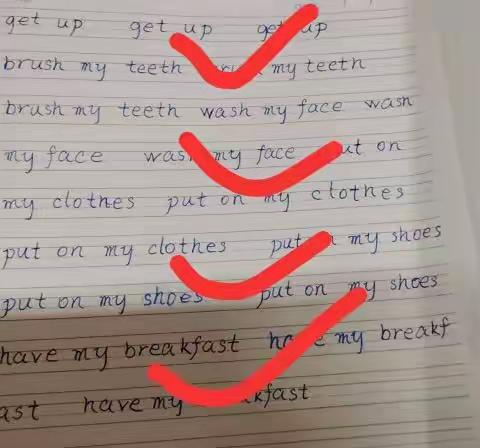 get up get up get up
brush my teeth my teeth
brush my teeth wash my face wash
my face wash my face put on
my clothes put on my clothes
put on my clothes put on my shoes
put on my shoes put on my shoes
have my breakfast have my breakf
ast have my